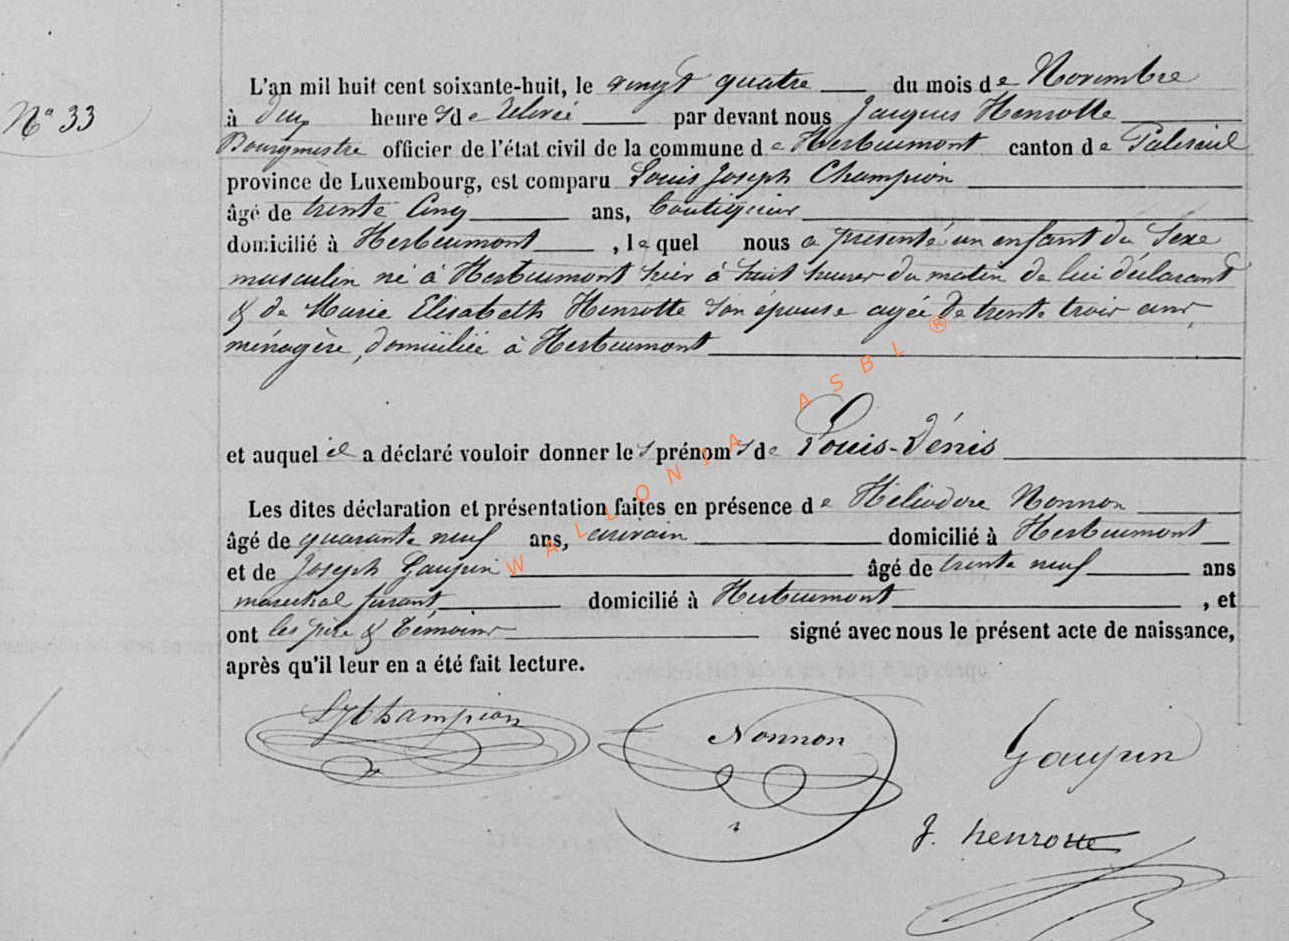 N° 33
L'an mil huit cent soixante-huit, le vingt quatre du mois de Novembre
à deux heures de relevée par devant nous Jacques Henrotte
Bourgmestre officier de l'état civil de la commune de Herbeumont canton de Paliseul
province de Luxembourg, est comparu Louis Joseph Champion
âgé de trente cinq ans, boutiquier
domicilié à Herbeumont, lequel nous a présenté un enfant du sexe
masculin né à Herbeumont hier à huit heures du matin de lui déclarant
& de Marie Elisabeth Henrotte son épouse agée de trente trois ans,
ménagère, domiciliée à Herbeumont
et auquel il a déclaré vouloir donner les prénoms de Louis-Dénis
Les dites déclaration et présentation faites en présence de Héliodore Nonnon
âgé de quarante neuf ans, écrivain domicilié à Herbeumont
et de Joseph Gaupin âgé de trente neuf ans
marechal ferrant, domicilié à Herbeumont, et
ont les père & témoins signé avec nous le présent acte de naissance,
après qu'il leur en a été fait lecture.
LJChampion Nonnon Gaupin
J. henrotte
WALLONIA ASBL ®